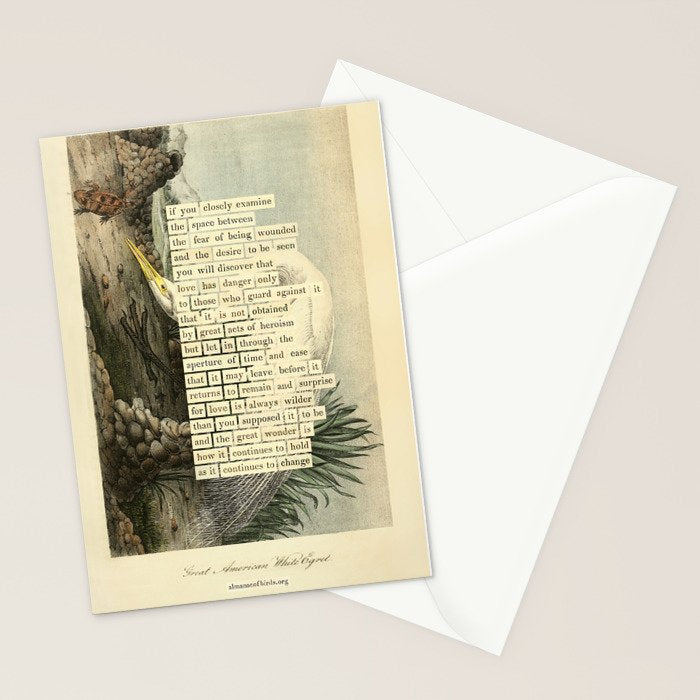 if you closely examine
the space between
the fear of being wounded
and the desire to be seen
you will discover that
love has danger only
to those who guard against it
that it is not obtained
by great acts of heroism
but let in through the
aperture of time and ease
that it may leave before it
returns to remain and surprise
for love is always wilder
than you supposed it to be
and the great wonder is
how it continues to hold
as it continues to change
Great American White Egret
almanacofbirds.org